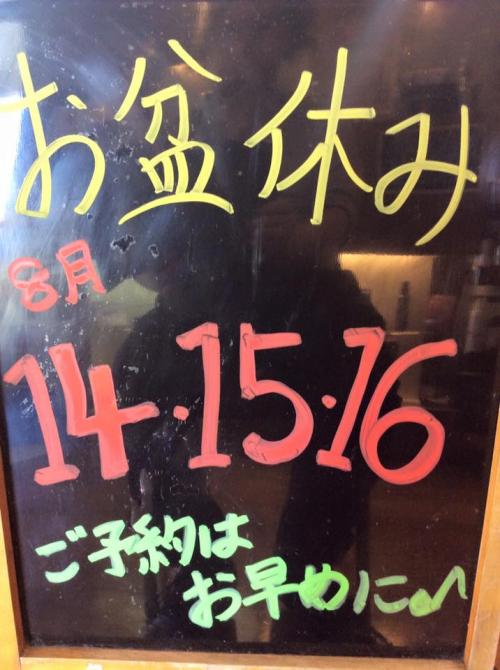 お盆休み
8月
14・15・16
ご予約は
お早めに♪